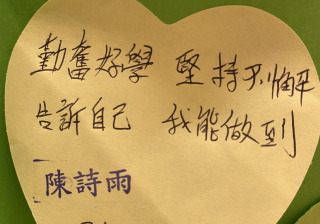 勤奮好學 堅持不懈
告訴自己 我能做到
陳詩雨